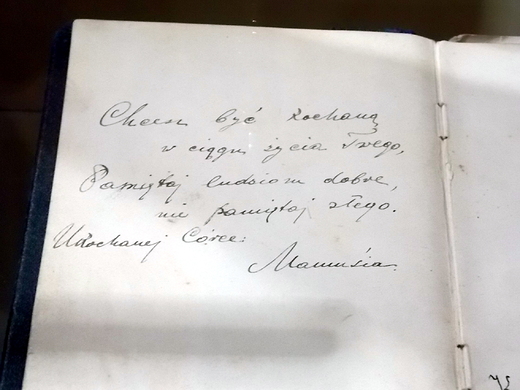 Chcesz być kochaną
w ciągu życia Twego,
Pamiętaj ludziom dobre,
nie pamiętaj złego.
Ukochanej Córce:
Mamusia.